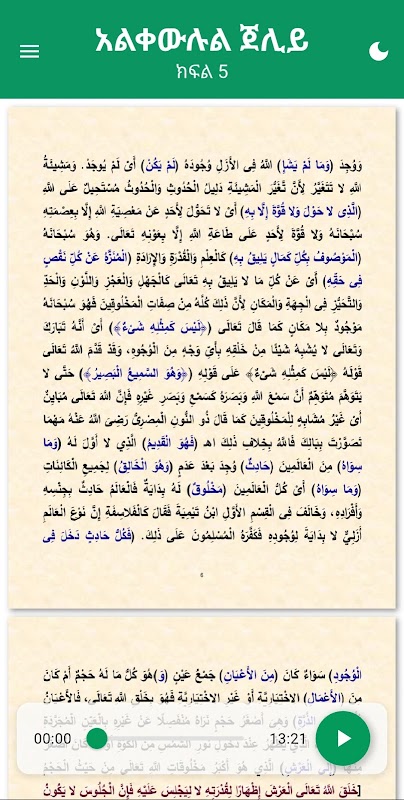 አልቀውሉል ጀሊይ
ክፍል 5
وَوُجِدَ (وَمَا لَمْ يَشَإِ) اللهُ فِى الأَزَلِ وُجُودَهُ (لَمْ يَكُنْ) أَىْ لَمْ يُوجَدْ. وَمَشِيئَةُ
اللهِ لا تَتَغَيَّرُ لِأَنَّ تَغَيُّرَ الْمَشِيئَةِ دَلِيلُ الْحُدُوثِ وَالْحُدُوثُ مُسْتَحِيلٌ عَلَى اللهِ
(الَّذِى لا حَوْلَ وَلا قُوَّةَ إِلَّا بِهِ) أَىْ لا تَحَوُّلَ لِأَحَدٍ عَنْ مَعْصِيَةِ اللهِ إِلَّا بِعِصْمَتِهِ
سُبْحَانَهُ وَلا قُوَّةَ لِأَحَدٍ عَلَى طَاعَةِ اللهِ إِلَّا بِعَوْنِهِ تَعَالَى. وَهُوَ سُبْحَانَهُ
(الْمَوْصُوفُ بِكُلِّ كَمَالٍ يَلِيقُ بِهِ) كَالْعِلْمِ وَالْقُدْرَةِ وَالإِرَادَةِ (الْمُنَزَّهُ عَنْ كُلِّ نَقْصٍ
فِى حَقِّهِ) أَىْ عَنْ كُلِّ مَا لا يَلِيقُ بِهِ تَعَالَى كَالْجَهْلِ وَالْعَجْزِ وَاللَّوْنِ وَالْحَدِّ
وَالتَّحَيُّزِ فِى الْجِهَةِ وَالْمَكَانِ لِأَنَّ ذَلِكَ كُلَّهُ مِنْ صِفَاتِ الْمَخْلُوقِينَ فَهُوَ سُبْحَانَهُ
مَوْجُودٌ بِلا مَكَانٍ كَمَا قَالَ تَعَالَى (﴿لَيْسَ كَمِثْلِهِ شَىْءٌ﴾) أَىْ أَنَّهُ تَبَارَكَ
وَتَعَالَى لا يُشْبِهُ شَيْئًا مِنْ خَلْقِهِ بِأَىِّ وَجْهٍ مِنَ الْوُجُوهِ، وَقَدْ قَدَّمَ اللهُ تَعَالَى
قَوْلَهُ ﴿لَيْسَ كَمِثْلِهِ شَىْءٌ﴾ عَلَى قَوْلِهِ (﴿وَهُوَ السَّمِيعُ الْبَصِيرُ﴾) حَتَّى لا
يَتَوَهَّمَ مُتَوَهِّمٌ أَنَّ سَمْعَ اللهِ وَبَصَرَهُ كَسَمْعِ وَبَصَرِ غَيْرِهِ فَإِنَّ اللهَ تَعَالَى مُبَايِنٌ
أَىْ غَيْرُ مُشَابِهٍ لِلْمَخْلُوقِينَ كَمَا قَالَ ذُو النُّونِ الْمِصْرِىُّ رَضِىَ اللهُ عَنْهُ مَهْمَا
تَصَوَّرْتَ بِبَالِكَ فَاللهُ بِخِلافِ ذَلِكَ اهـ (فَهُوَ الْقَدِيمُ) الَّذِي لا أَوَّلَ لَهُ (وَمَا
سِوَاهُ) مِنَ الْعَالَمِينَ (حَادِثٌ) وُجِدَ بَعْدَ عَدَمٍ (وَهُوَ الْخَالِقُ) لِجَمِيعِ الْكَائِنَاتِ
(وَمَا سِوَاهُ) أَىْ كُلُّ الْعَالَمِينَ (مَخْلُوقٌ) لَهُ بِدَايَةٌ فَالْعَالَمُ حَادِثٌ بِجِنْسِهِ
وَأَفْرَادِهِ، وَخَالَفَ فِى الْقِسْمِ الأَوَّلِ ابْنُ تَيْمِيَةَ فَقَالَ كَالْفَلاسِفَةِ إِنَّ نَوْعَ الْعَالَمِ
أَزَلِىٌّ لا بِدَايَةَ لِوُجُودِهِ فَكَفَّرَهُ الْمُسْلِمُونَ عَلَى ذَلِكَ. (فَكُلُّ حَادِثٍ دَخَلَ فِى
6
الْوُجُودِ) سَوَاءٌ كَانَ (مِنَ الأَعْيَانِ) جَمْعُ عَيْنٍ (وَ)هُوَ كُلُّ مَا لَهُ حَجْمٌ أَمْ كَانَ
مِنَ (الأَعْمَالِ) الِاخْتِيَارِيَّةِ أَوْ غَيْرِ الِاخْتِيَارِيَّةِ فَهُوَ بِخَلْقِ اللهِ تَعَالَى، فَالأَعْيَانُ
00:00
13:21
خَلَقَ اللهُ تَعَالَى الْعَرْشَ إِظْهَارًا لِقُدْرَتِهِ لا لِيَجْلِسَ عَلَيْهِ فَإِنَّ الْجُلُوسَ لا يَكُونُ